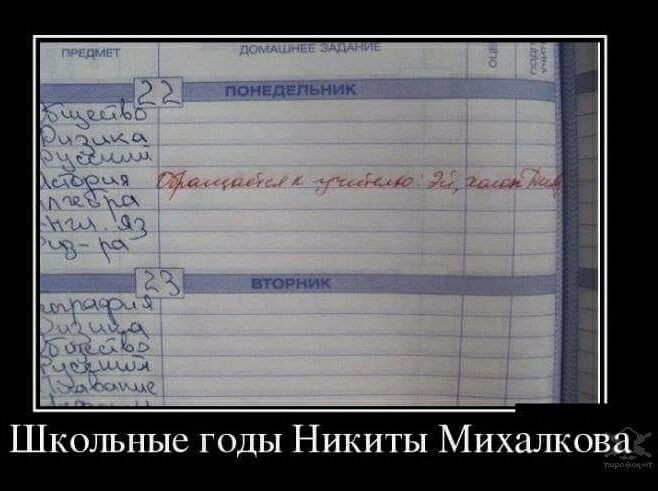 ПРЕДМЕТ ДОМАШНЕЕ ЗАДАНИЕ ОЦЕ ПОДП УЧИТ
22 ПОНЕДЕЛЬНИК
Общество
Физика
Русский
История Обращается к учителю: Эй, холоп
Алгебра
Англ. яз
Физ-ра
23 ВТОРНИК
География
Физика
Общество
Русский
Плавание
Школьные годы Никиты Михалкова